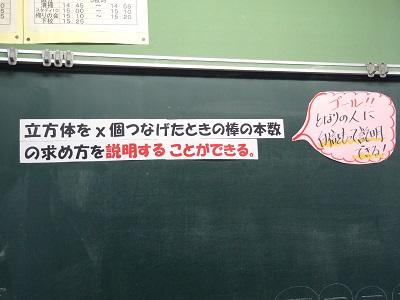 清掃 14 45 ― 14 55
スタディ10 15 00 ― 15 10
帰りの会 15 10 ― 15 20
下校 15 25
立方体をx個つなげたときの棒の本数
の求め方を説明することができる。
ゴール!!
とほりの人に
自信もって説明
できる!